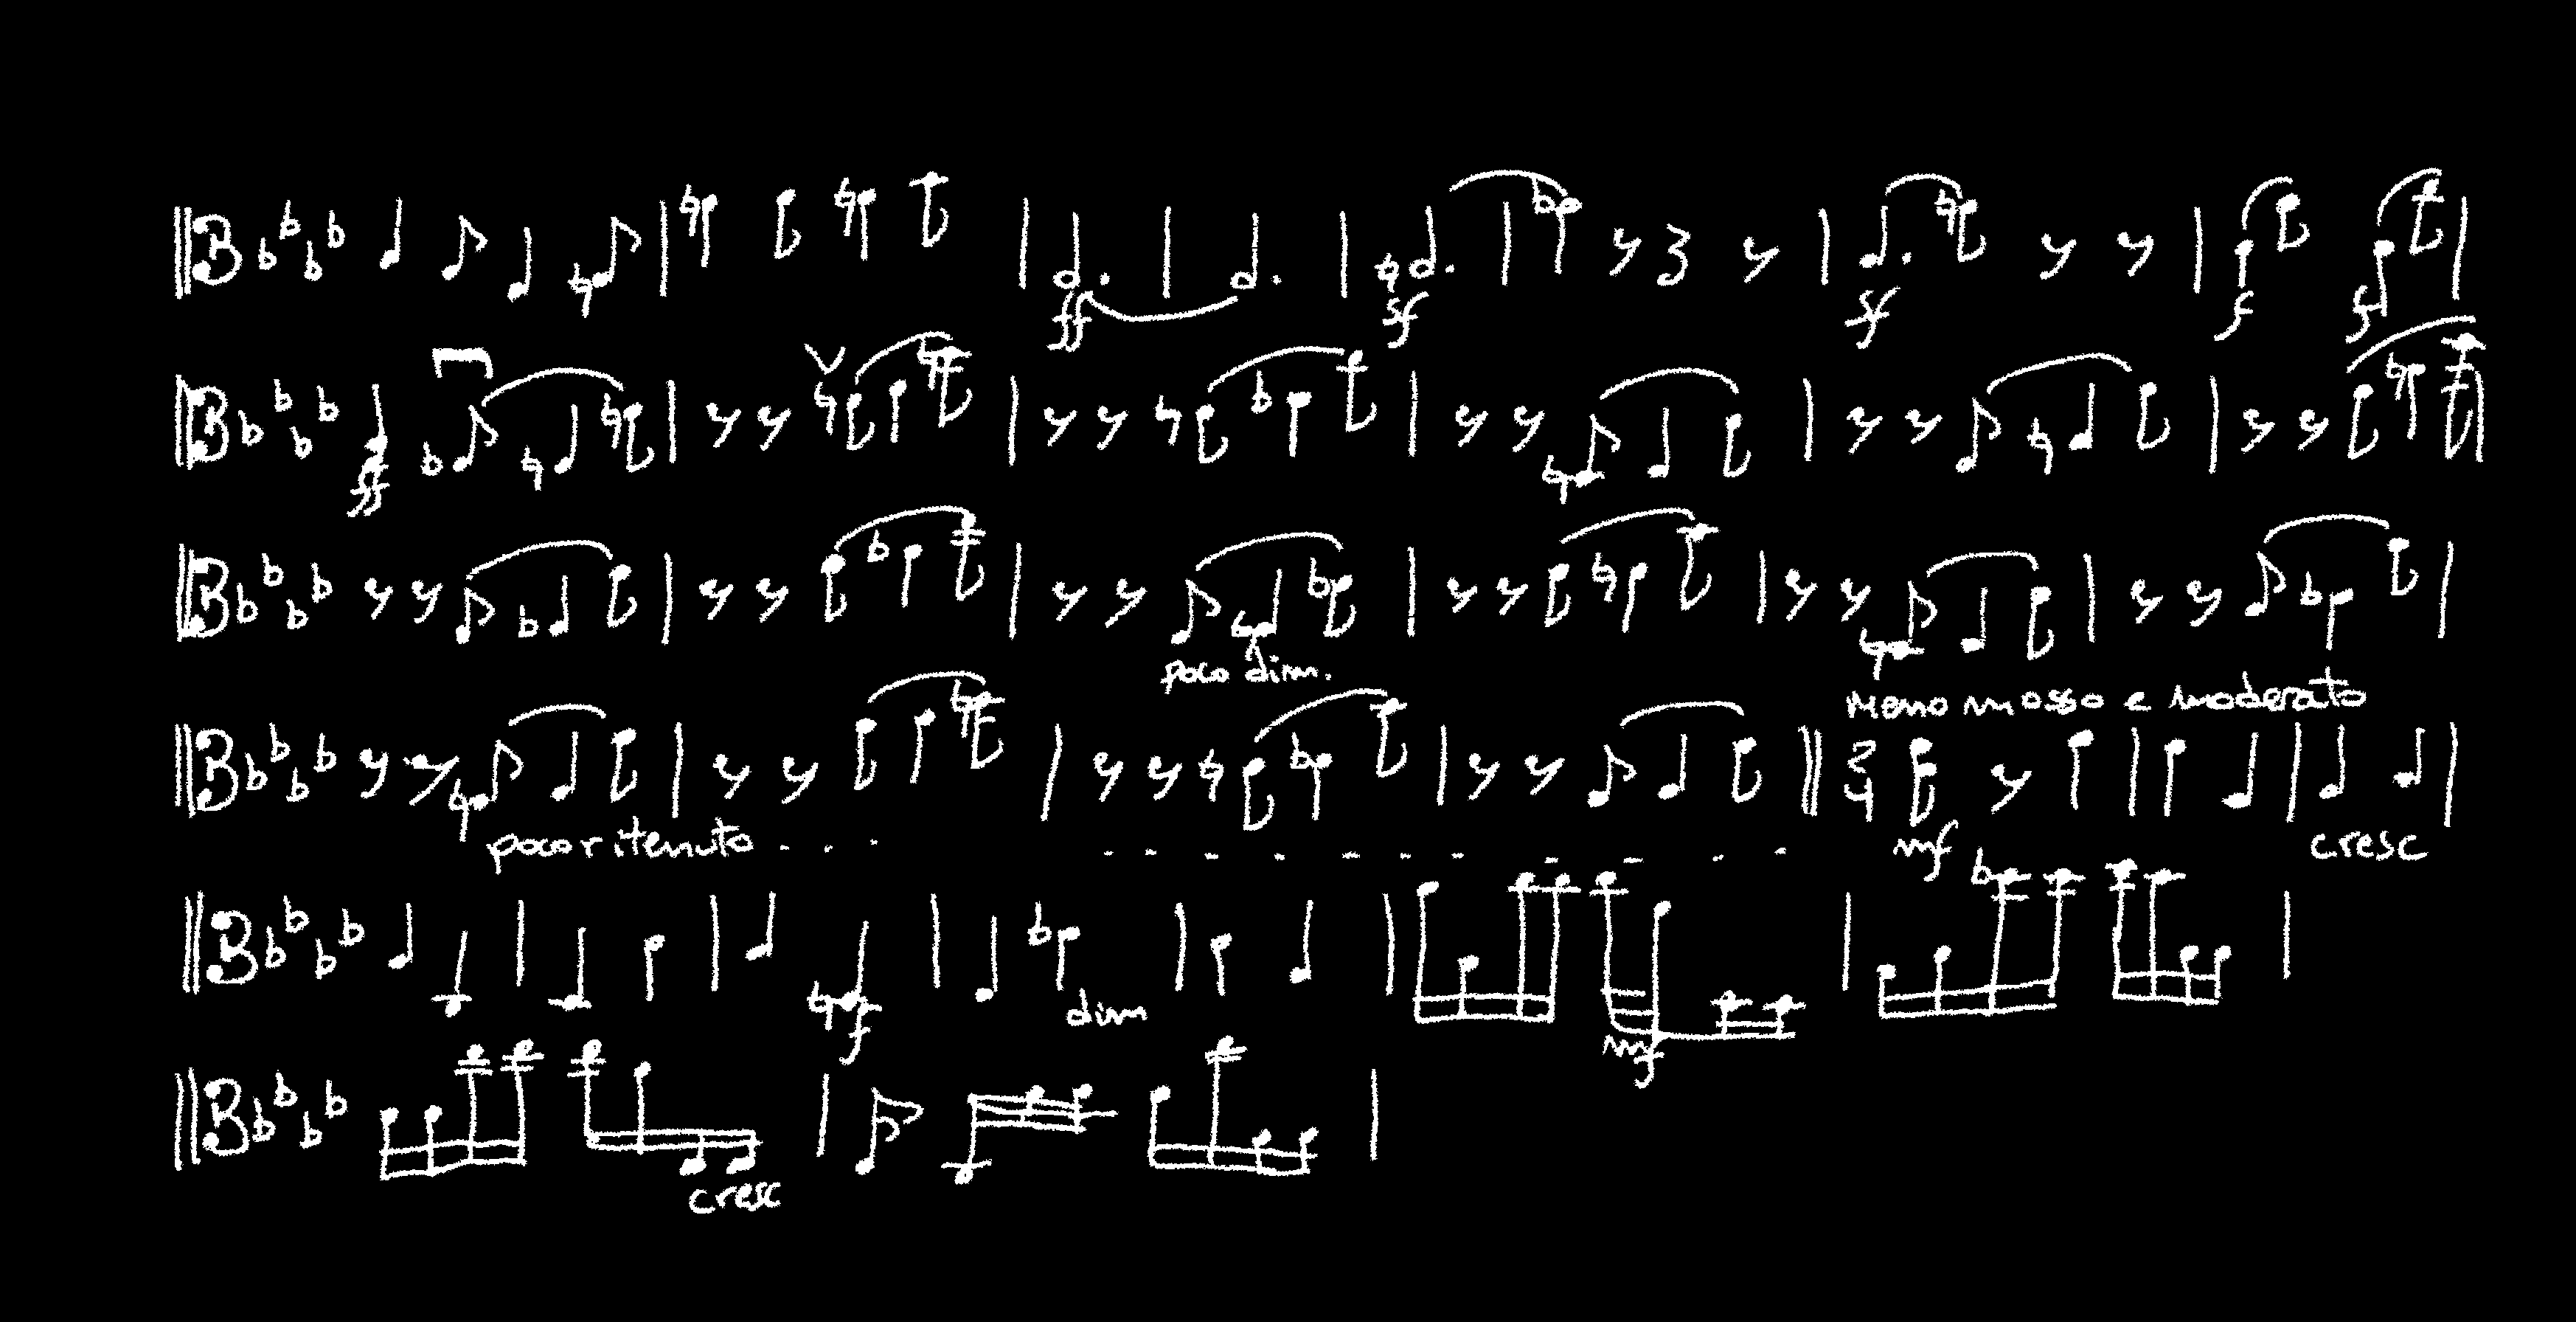 ff sf sf f f
ff
poco dim.
Meno mosso e moderato
poco ritenuto - - - - - - - - - - - - - mf cresc
f dim mf
cresc